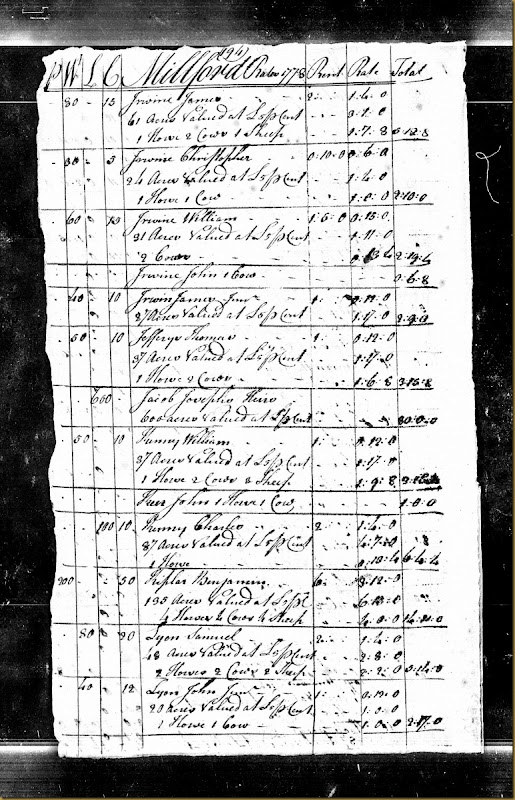 (494)
P W L C Millford Rates 1778 Rent Rate Total
80 - 15 Irwine James - 2 - 1:4:0
61 Acres Valued at L5 p Cent
1 Horse 2 Cows 1 Sheep 1:7:8 5:12:8
Irwine Christopher 0:10:0 0:6:0
24 Acres Valued at L5 p Cent 1:4:0
1 Horse 1 Cow 1:0:0 2:10:0
60 Irwine William 1:5:0 0:15:0
31 Acres Valued at L5 p Cent 1:11:0
2 Cows 0:13:4 2:19:4
Irwine John 1 Cow 0:6:8
40 10 Irwin James Junr 1: 0:12:0
37 Acres Valued at L5 p Cent 1:17:0
50 10 Jefferys Thomas 0:12:0
37 Acres Valued at L5 p Cent 1:17:0
1 Horse 2 Cows 1:6:8 3:15:8
600 Jacob Josephs Heirs
600 acres Valued at L5 p Cent 30:0:0
50 10 William 1: 0:12:0
37 Acres Valued at L5 p Cent 1:17:0
1 Horse 2 Cows 3 Sheep 1:9:8
John 1 Horse 1 Cow 1:0:0
100 10 Charles 2 1:4:0
87 Acres Valued at L5 p Cent 4:7:0
1 Horse 0:13:4 6:4:4
200 50 Benjamin 6: 3:12:0
135 Acres Valued at L5 p Ct 6:15:0
4 Horses 4 Cows 4 Sheep
80 20 Lyon Samuel 2: 1:4:0
48 Acres Valued at L5 p Cent 2:8:0
2 Horses 2 Cows 2 Sheep 2:2:0 5:14:0
40 12 Lyon John Junr 1: 0:12:0
20 acres Valued at L5 p Cent 1:0:0
1 Horse 1 Cow 1:0:0 2:17:0